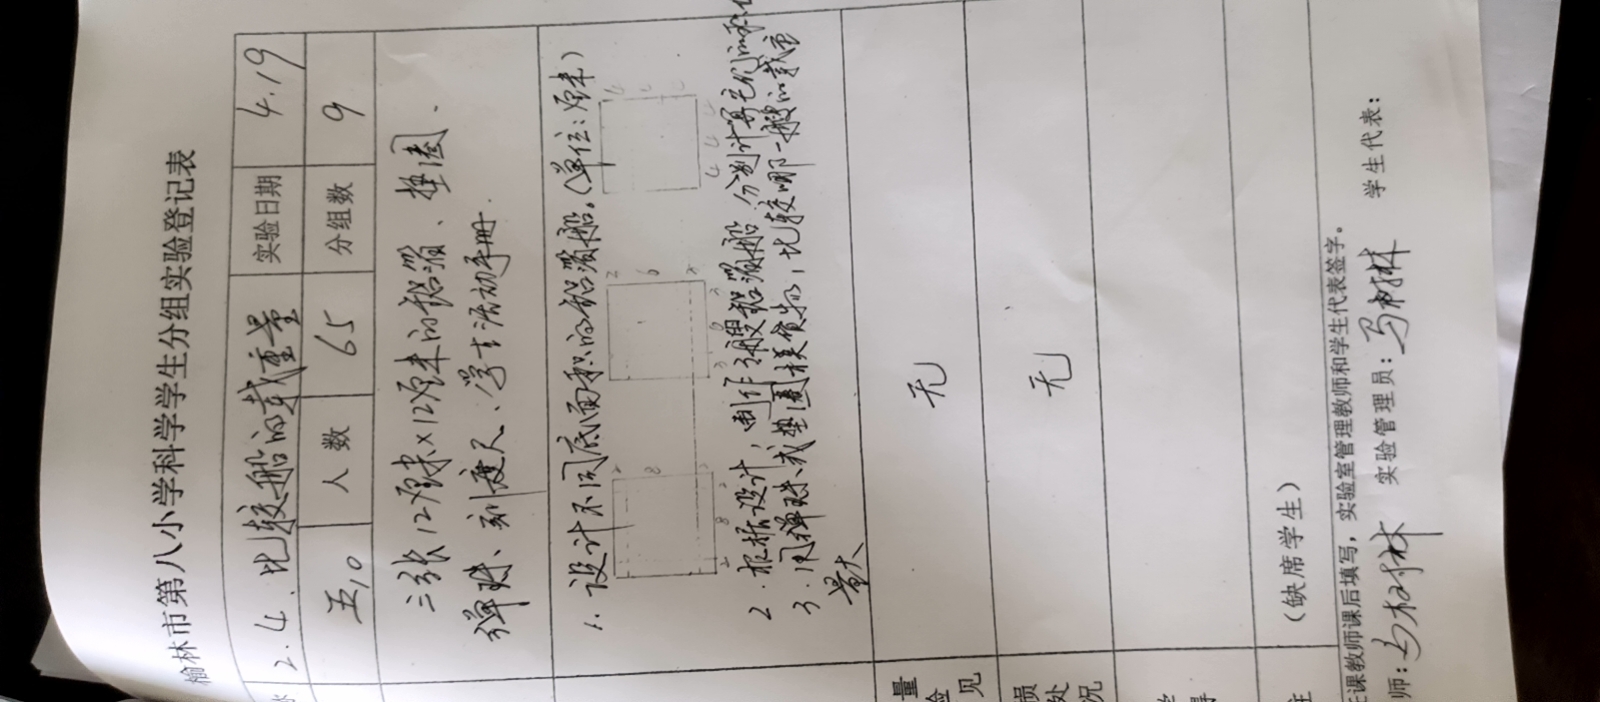 榆林市第八小学科学学生分组实验登记表
2.4、比较船的载重量 实验日期 4.19
五.10 人数 65 分组数 9
三张12厘米×12厘米的铝箔、垫圈、
弹珠、刻度尺、学生活动手册.
1.设计不同底面积的铝箔船。(单位:厘米)
2 8 2
2 8 2
2 6
3 6 3
4 4 4
2.根据设计,制作三艘铝箔船,分别计算它们的
3.用弹珠或垫圈模拟货物,比较哪一艘的载重
量大
量 无
验
见
损 无
处
况
得
注 (缺席学生)
任课教师课后填写,实验室管理教师和学生代表签字。
师:马树林 实验管理员:马树林 学生代表: